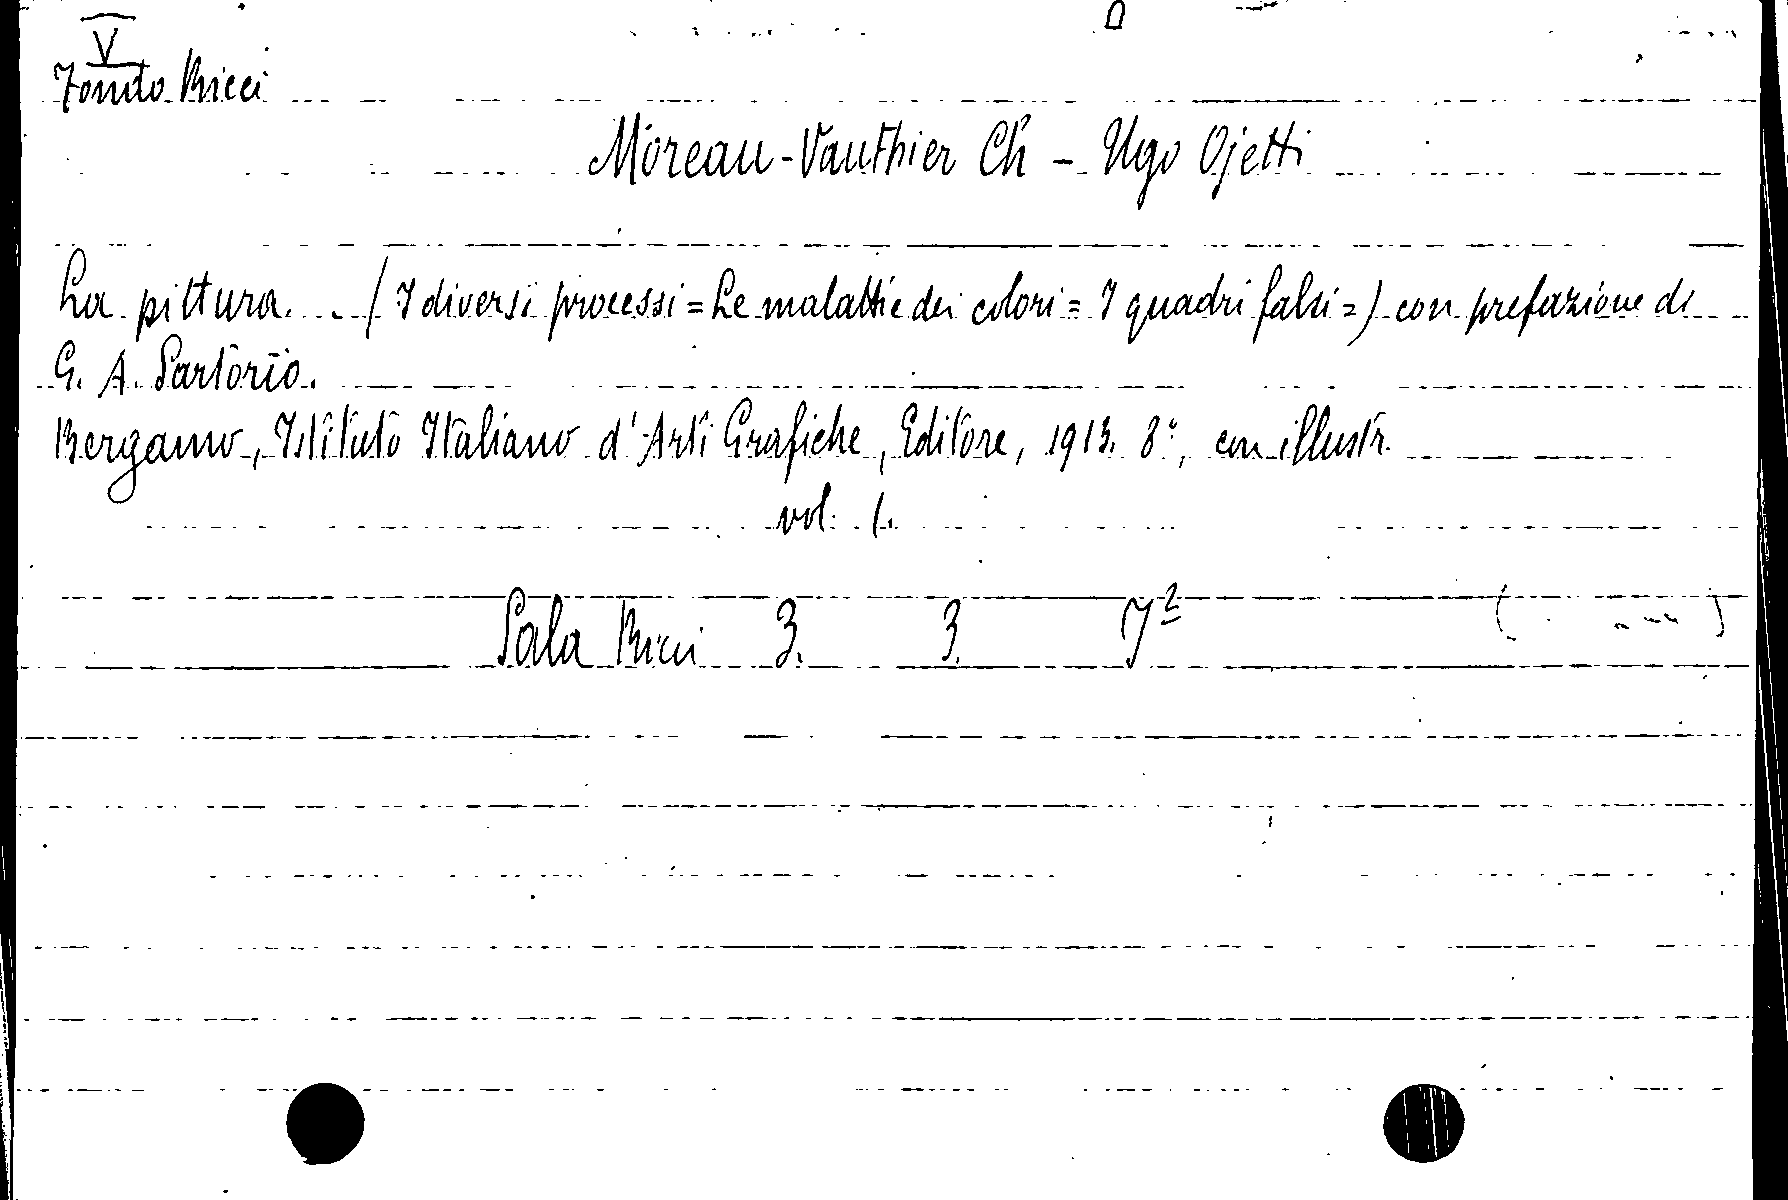 V
Fondo Ricci
Moreau-Vauthier Ch - Ugo Ojetti
La pittura... (I diversi processi = Le malattie dei colori = I quadri falsi =) con prefazione di
G. A. Sartorio.
Bergamo, Istituto Italiano d'Arti Grafiche, Editore, 1913. 8°, con illustr.
vol. 1.
Sala Ricci 3. 3. 7²